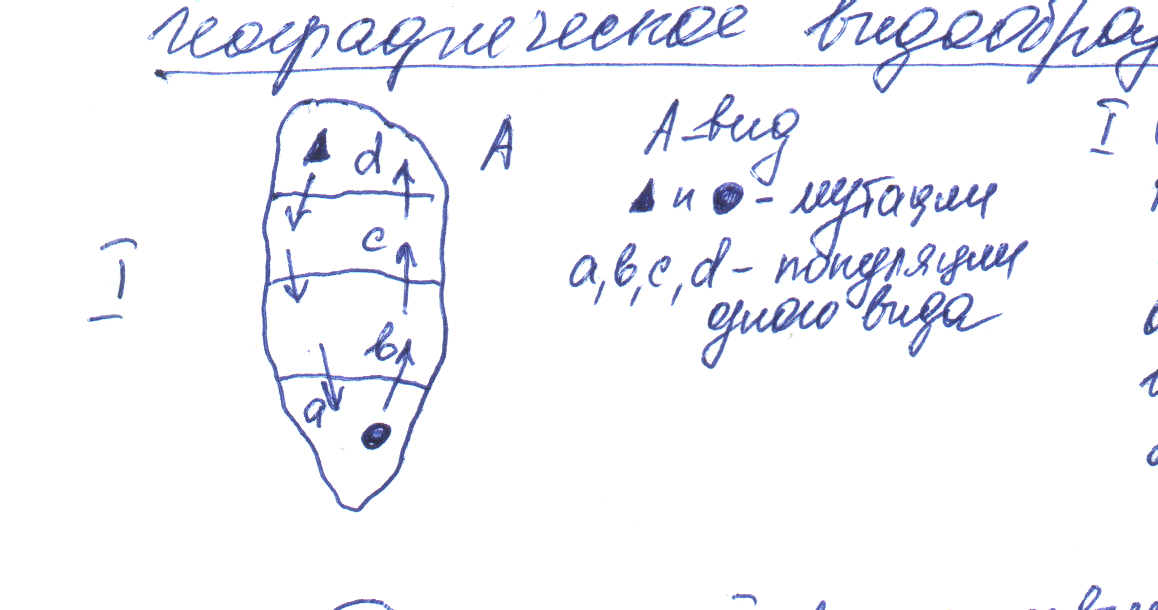 географическое видообраз
A
A-вид
I
▲ и ● - мутации
d
c
a, b, c, d - популяции
одного вида
I
b
a